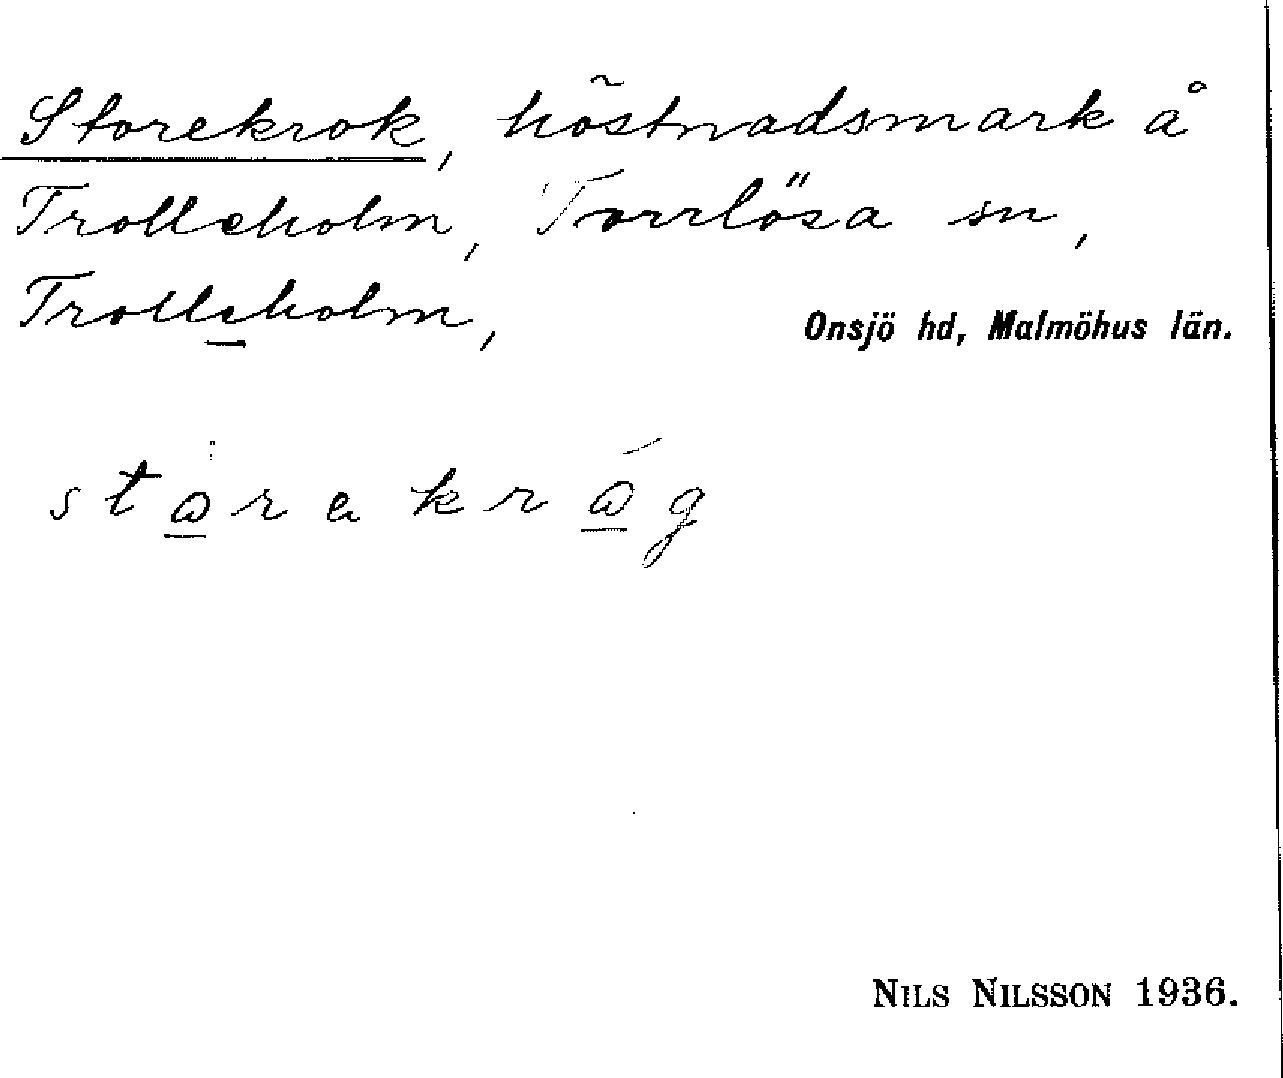 Storekrok, höstnadsmark å
Trolleholm, Torrlösa sn,
Trolleholm, Onsjö hd, Malmöhus län.
NILS NILSSON 1936.